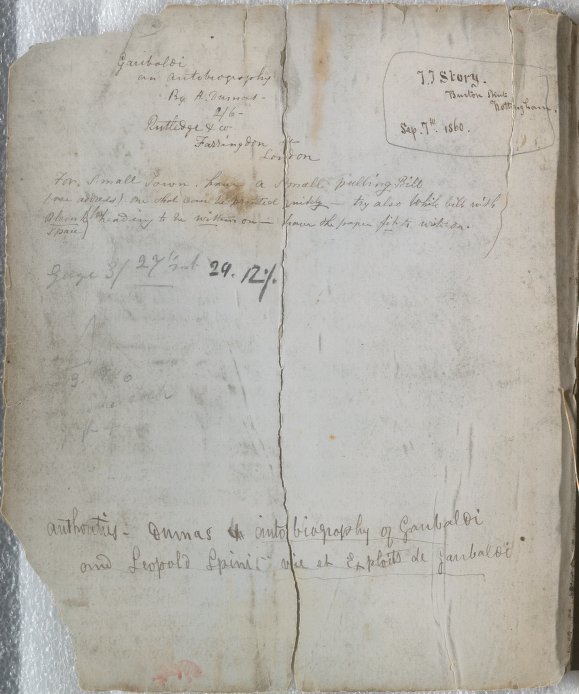 Garibaldi
an autobiography
By A. Dumas -
2/6 -
Rutledge & co
Farringdon St
London
J J Story.
Burton Street
Nottingham.
Sep. 7th. 1860.
For Small Town. have a small pulling Bill
(one address) one that can be printed quickly - try also while bill with
heading to be written on - have the paper fit to write on.
space
George 3/ 27 29. 12/.
authorities - Dumas autobiography of Garibaldi
and Leopold Spinis vie et Exploits de Garibaldi